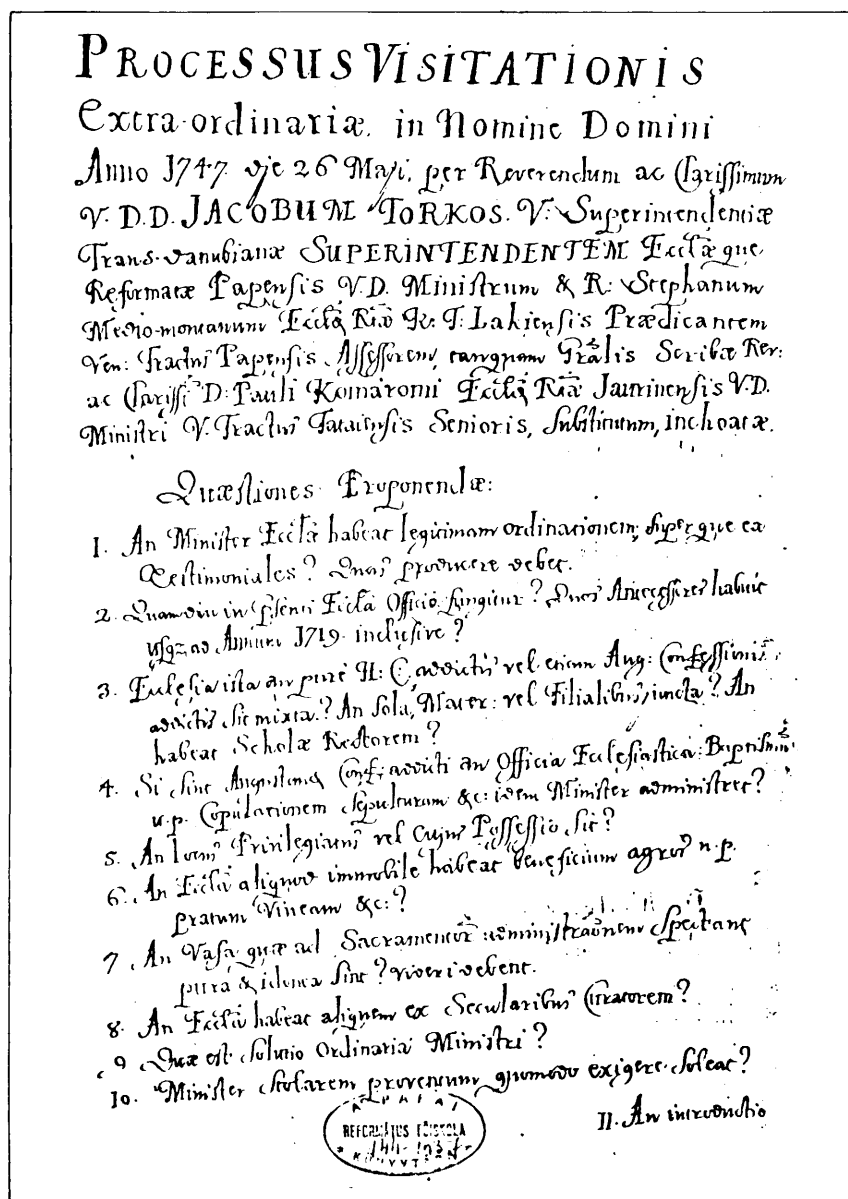 PROCESSUS VISITATIONIS
Extra-ordinariæ, in Nomine Domini
Anno 1747. die 26 Maji, per Reverendum ac Clarissimum
V. D. D. JACOBUM TORKOS. V: Superintendentiæ
Trans-danubianæ SUPERINTENDENTEM Ecclæque
Reformatæ Papensis V.D. Ministrum & R: Stephanum
Medio-montanum Ecclæ Rtæ K: T: Lakiensis Prædicantem
Ven: Tractus Papensis Assessorem, tanquam Gralis Scribæ Rer:
ac Clarissi D: Pauli Komaromi Ecclæ Rtæ Jaurinensis V.D.
Ministri V. Tractus Tataiensis Senioris, Substitutum, inchoatæ.
Quæstiones Proponendæ:
1. An Minister Ecclæ habeat legitimam ordinationem, superque ea
Testimoniales? Quas producere debet.
2. Quamdiu in psenti Eccla Officio fungitur? Quos Antecessores habuit
usqz ad Annum 1719. inclusive?
3. Ecclesia ista an pure H: C. addictis vel etiam Aug: Confessionis
addictis sit mixta? An sola, Mater: vel Filialibus juncta? An
habeat Scholæ Rectorem?
4. Si sint Augustanæ Conf: addicti an Officia Ecclesiastica: Baptismum
u.p. Copulationem sepulturam &c: idem Minister administret?
5. An locus Privilegiatus vel Cujus Possessio sit?
6. An Eccla aliquod immobile habeat beneficium agros n.p.
pratum Vineam &c:?
7. An Vasa quæ ad Sacramentor administraonem Spectant
pura & idonea sint? videri debent.
8. An Eccla habeat aliquem ex Secularibus Curatorem?
9. Quæ est Solutio Ordinaria Ministri?
10. Minister Scolarem proventum quomodo exigere soleat?
11. An introductio
A PÁPAI
REFORMÁTUS FŐISKOLA
KÖNYVTÁRA